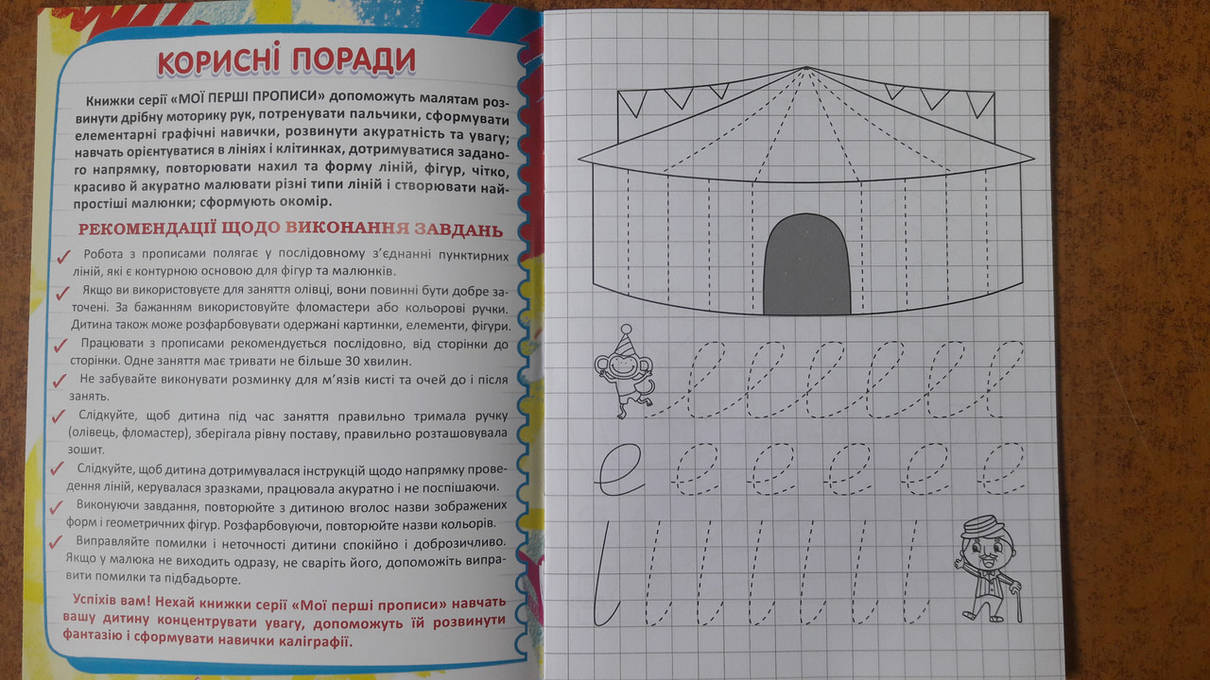 КОРИСНІ ПОРАДИ
Книжки серії «МОЇ ПЕРШІ ПРОПИСИ» допоможуть малятам роз-
винути дрібну моторику рук, потренувати пальчики, сформувати
елементарні графічні навички, розвинути акуратність та увагу;
навчать орієнтуватися в лініях і клітинках, дотримуватися задано-
го напрямку, повторювати нахил та форму ліній, фігур, чітко,
красиво й акуратно малювати різні типи ліній і створювати най-
простіші малюнки; сформують окомір.
РЕКОМЕНДАЦІЇ ЩОДО ВИКОНАННЯ ЗАВДАНЬ
Робота з прописами полягає у послідовному з’єднанні пунктирних
ліній, які є контурною основою для фігур та малюнків.
Якщо ви використовуєте для заняття олівці, вони повинні бути добре за-
точені. За бажанням використовуйте фломастери або кольорові ручки.
Дитина також може розфарбовувати одержані картинки, елементи, фігури.
Працювати з прописами рекомендується послідовно, від сторінки до
сторінки. Одне заняття має тривати не більше 30 хвилин.
Не забувайте виконувати розминку для м’язів кисті та очей до і після
занять.
Слідкуйте, щоб дитина під час заняття правильно тримала ручку
(олівець, фломастер), зберігала рівну поставу, правильно розташовувала
зошит.
Слідкуйте, щоб дитина дотримувалася інструкцій щодо напрямку прове-
дення ліній, керувалася зразками, працювала акуратно і не поспішаючи.
Виконуючи завдання, повторюйте з дитиною вголос назви зображених
форм і геометричних фігур. Розфарбовуючи, повторюйте назви кольорів.
Виправляйте помилки і неточності дитини спокійно і доброзичливо.
Якщо у малюка не виходить одразу, не сваріть його, допоможіть випра-
вити помилки та підбадьорте.
Успіхів вам! Нехай книжки серії «Мої перші прописи» навчать
вашу дитину концентрувати увагу, допоможуть їй розвинути
фантазію і сформувати навички каліграфії.
е е е е е е